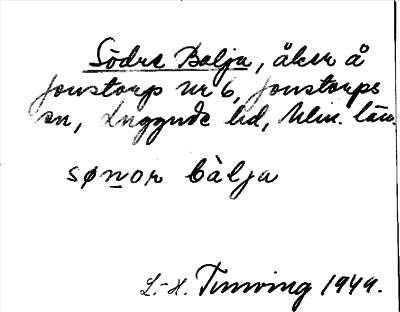 Södre Balja, åker å
Jonstorp nr 6, Jonstorps
sn, Luggude hd, Mlm. län.
sønor bàlja
L.-H. Tinning 1949.